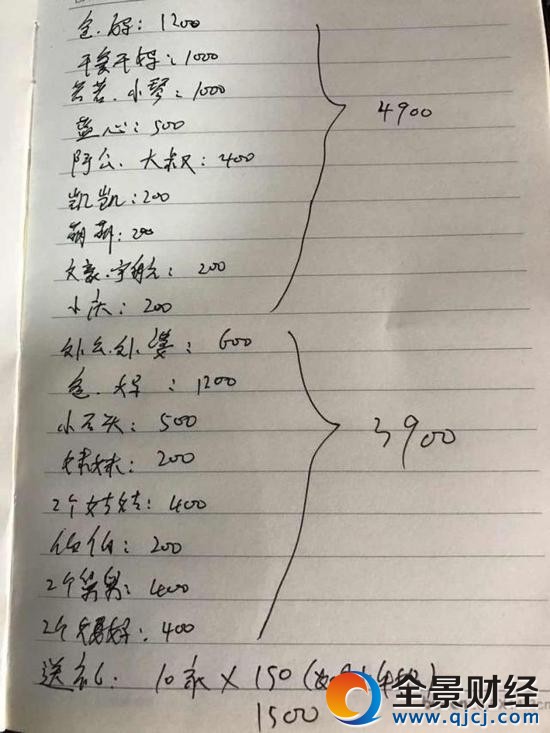 爸.妈: 1200
干爹干妈: 1000
芸芸.小琴: 1000
蓝心: 500
阿公.大叔: 400
凯凯: 200
萌萌: 200
文豪.宇航: 200
小庆: 200
4900
外公.外婆: 600
爸.妈: 1200
小石头: 500
妹妹: 200
2个姑姑: 400
伯伯: 200
2个舅舅: 400
2个舅妈: 400
3900
送礼: 10家×150
1500
全景财经
www.qjcj.com